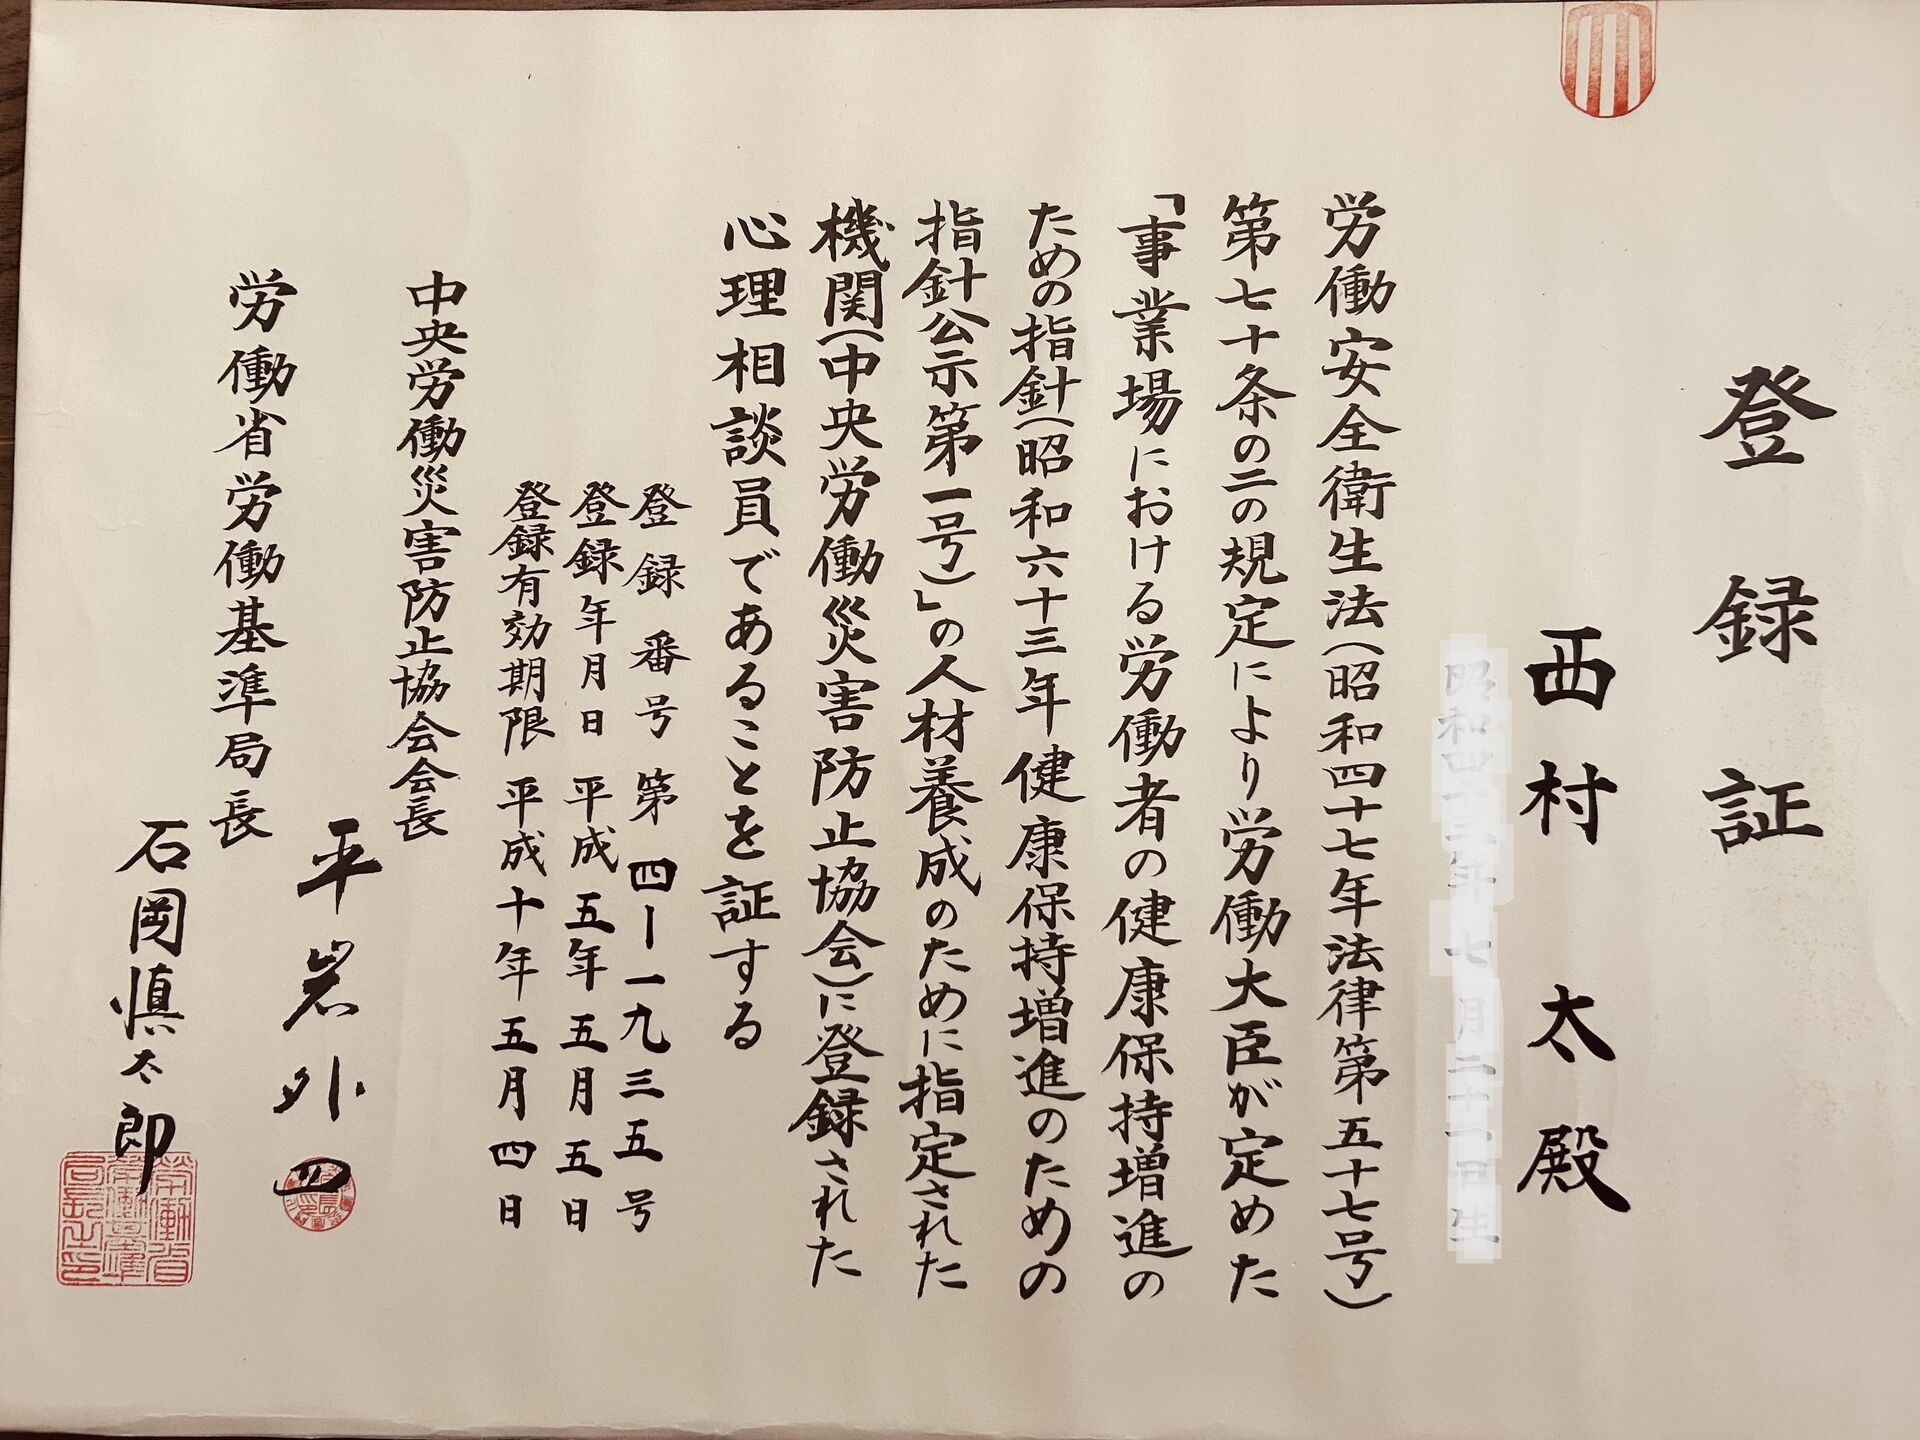 登録証
西村 太殿
労働安全衛生法(昭和四十七年法律第五十七号)
第七十条の二の規定により労働大臣が定めた
「事業場における労働者の健康保持増進の
ための指針(昭和六十三年健康保持増進のための
指針公示第一号)」の人材養成のために指定された
機関(中央労働災害防止協会)に登録された
心理相談員であることを証する
登録番号 第四ー一九三五号
登録年月日 平成五年五月五日
登録有効期限 平成十年五月四日
中央労働災害防止協会会長
平岩外四
労働省労働基準局長
石岡慎太郎